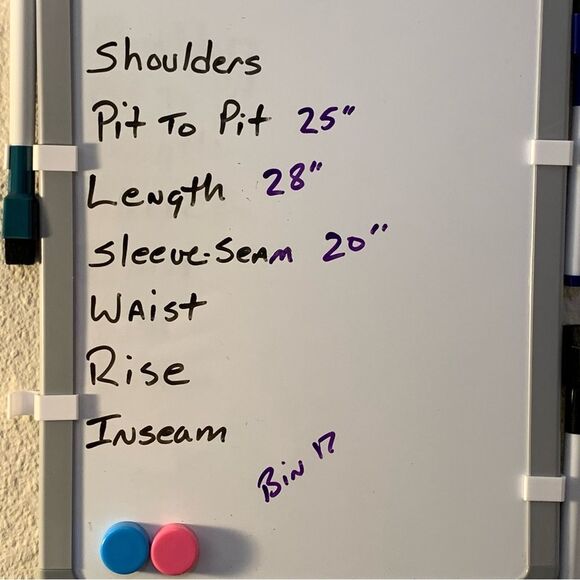 Shoulders
Pit To Pit 25"
Length 28"
Sleeve-Seam 20"
Waist
Rise
Inseam
Bin 17